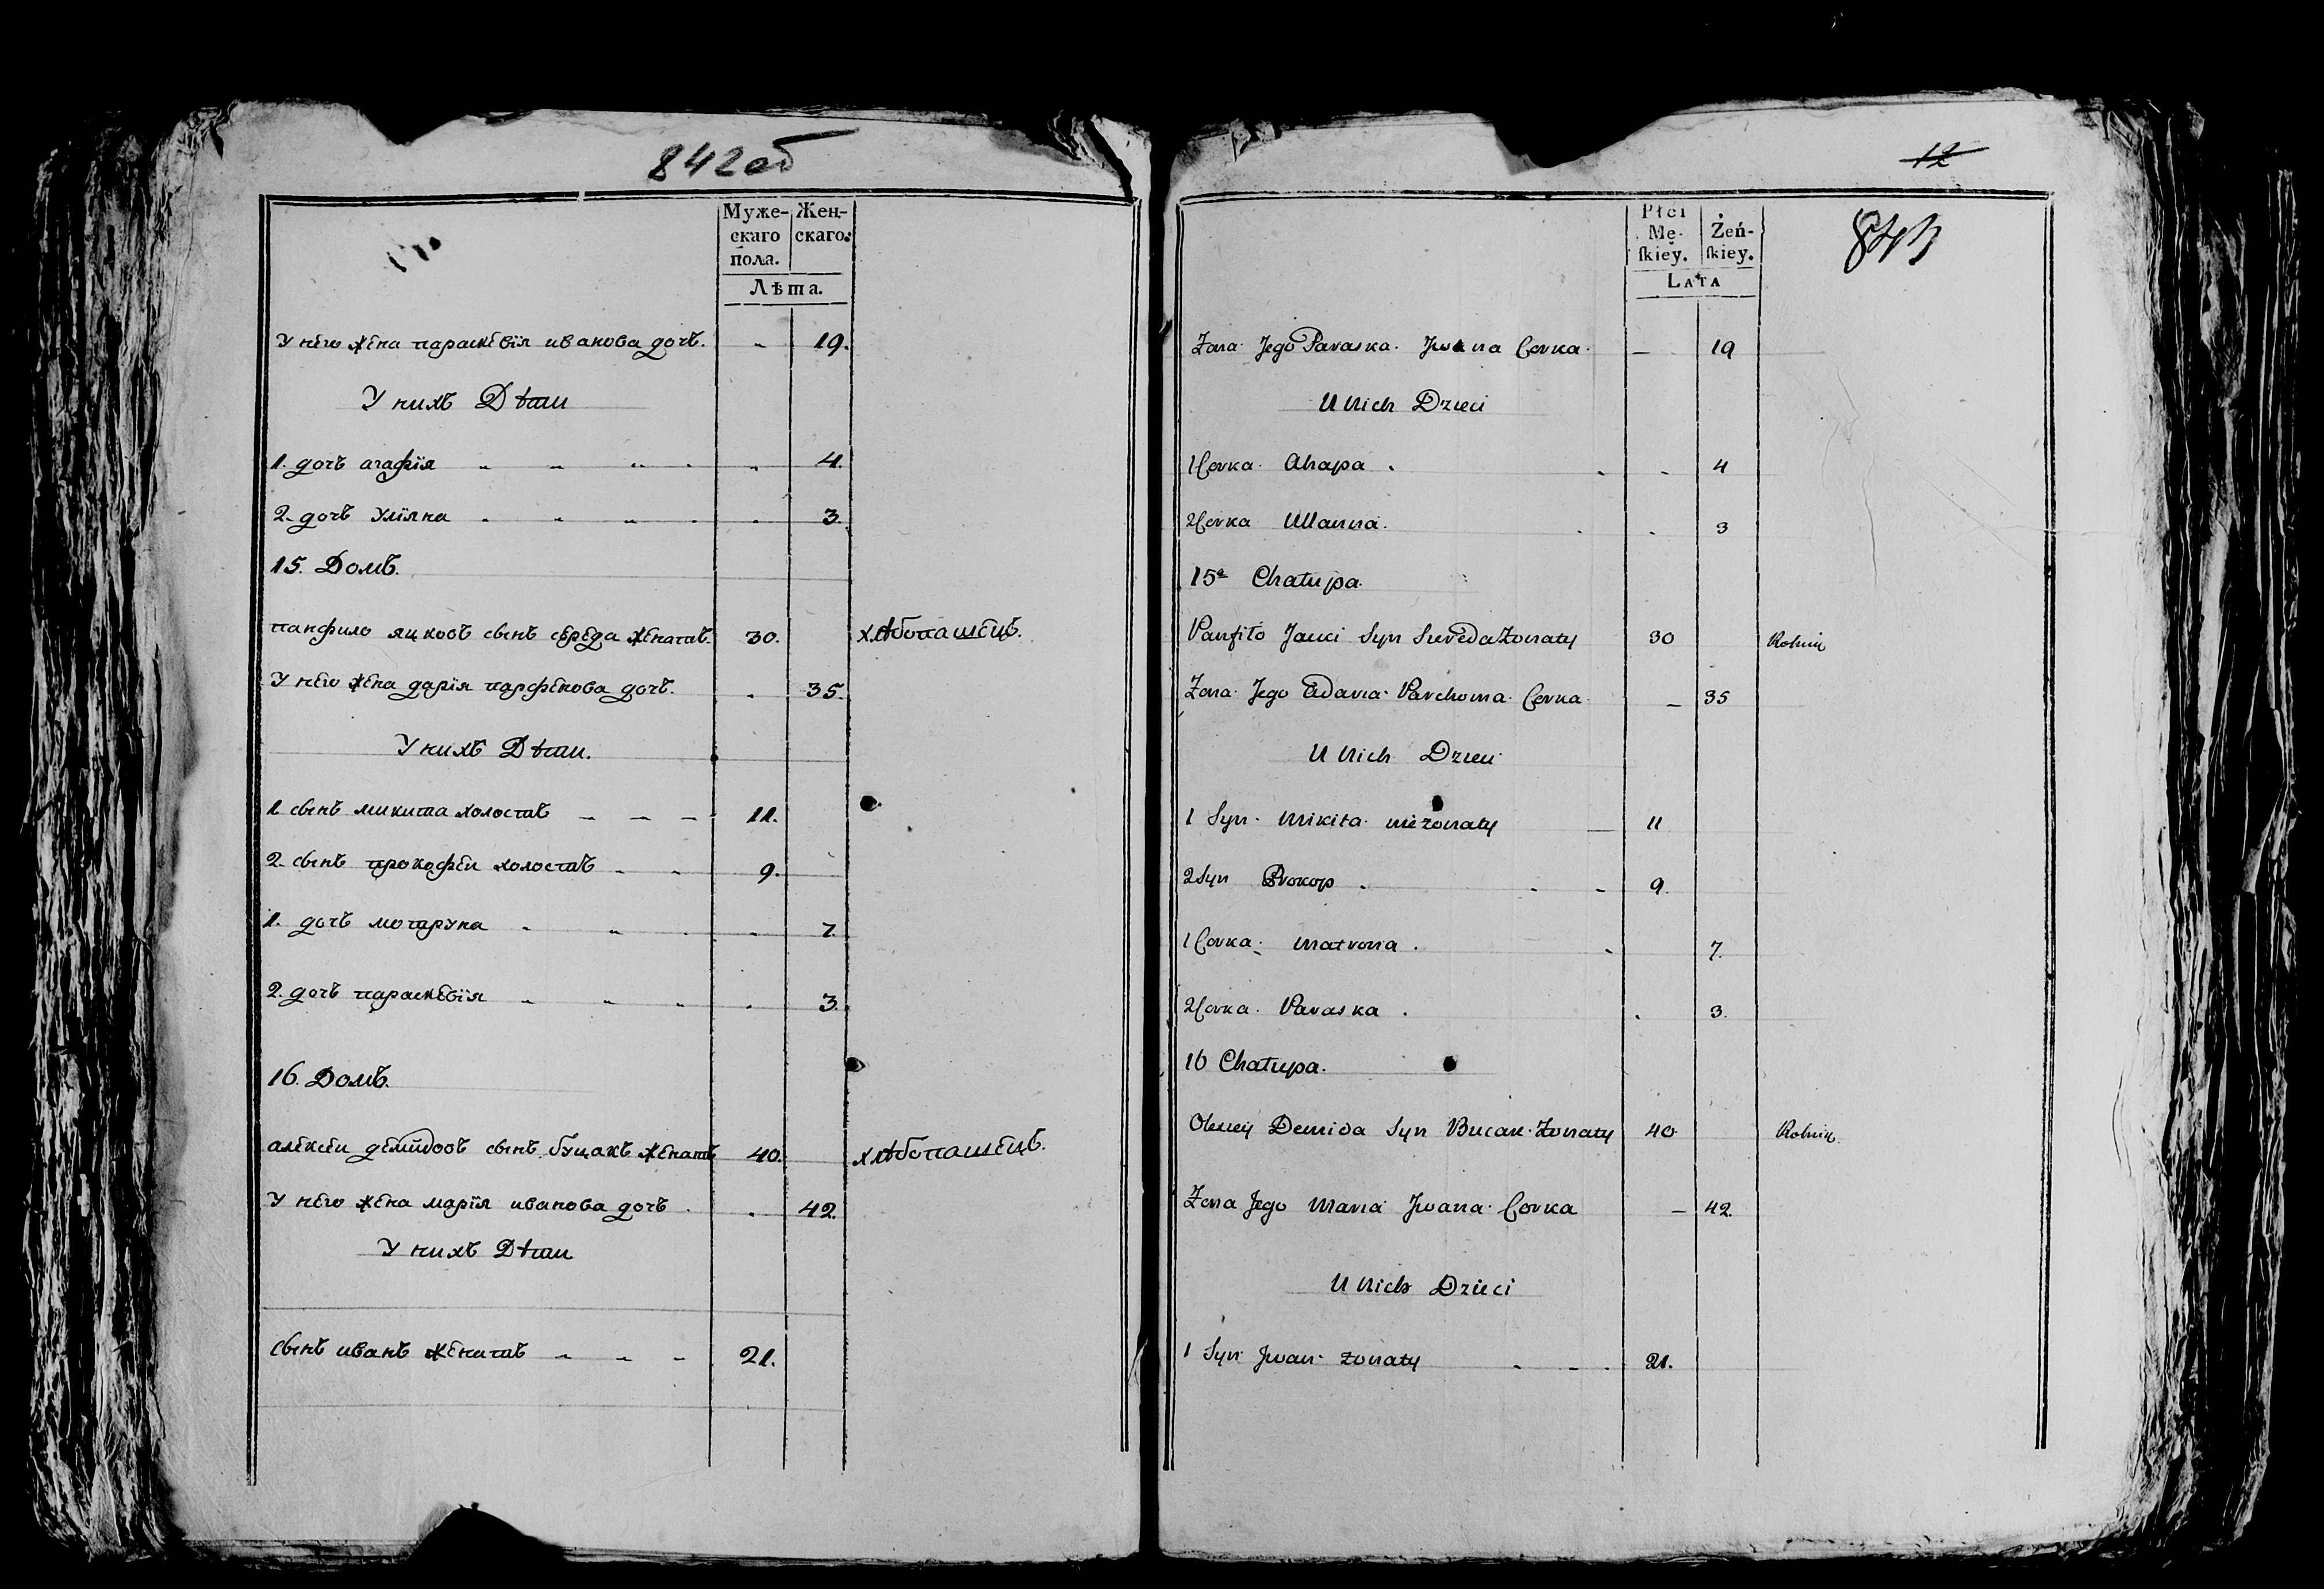 842об
Муже-
скаго
пола.
Жен-
скаго.
Лѣта.
У него жена параскевїя иванова дочъ. 19.
У нихъ Дѣти
1. дочъ агафїя 4.
2. дочъ Улїяна 3.
15. Домъ.
панфило яцковъ сынъ середа женатъ. 30. хлѣбопашецъ.
У него жена дарїя парфенова дочъ. 35.
У нихъ Дѣти.
1. сынъ микита холостъ 11.
2. сынъ прокофеи холостъ 9.
1. дочъ мотаруна 7.
2. дочъ параскевїя 3.
16. Домъ.
алексеи демидовъ сынъ буцакъ женатъ 40. хлѣбопашецъ.
У него жена марїя иванова дочъ 42.
У нихъ Дѣти
сынъ иванъ женатъ 21.
12
843
Płci
Mę-
skiey.
Żeń-
skiey.
LATA
Zona Jego Paraska Jwana Corka 19
U Nich Dzieci
1 Corka Ahapa 4
2 Corka Ulianna 3
15a Chałupa.
Panfiło Jacki Syn Sereda Zonaty 30 Rolnik
Zona Jego Odaria Parchoma Corka 35
U Nich Dzieci
1 Syn Mikita nieżonaty 11
2 Syn Prokop 9
1 Corka Matrona 7.
2 Corka Paraska 3.
16 Chałupa.
Olexiy Demida Syn Bucak Zonaty 40 Rolnik
Zona Jego Maria Jwana Corka 42.
U Nich Dzieci
1 Syn Jwan żonaty 21.